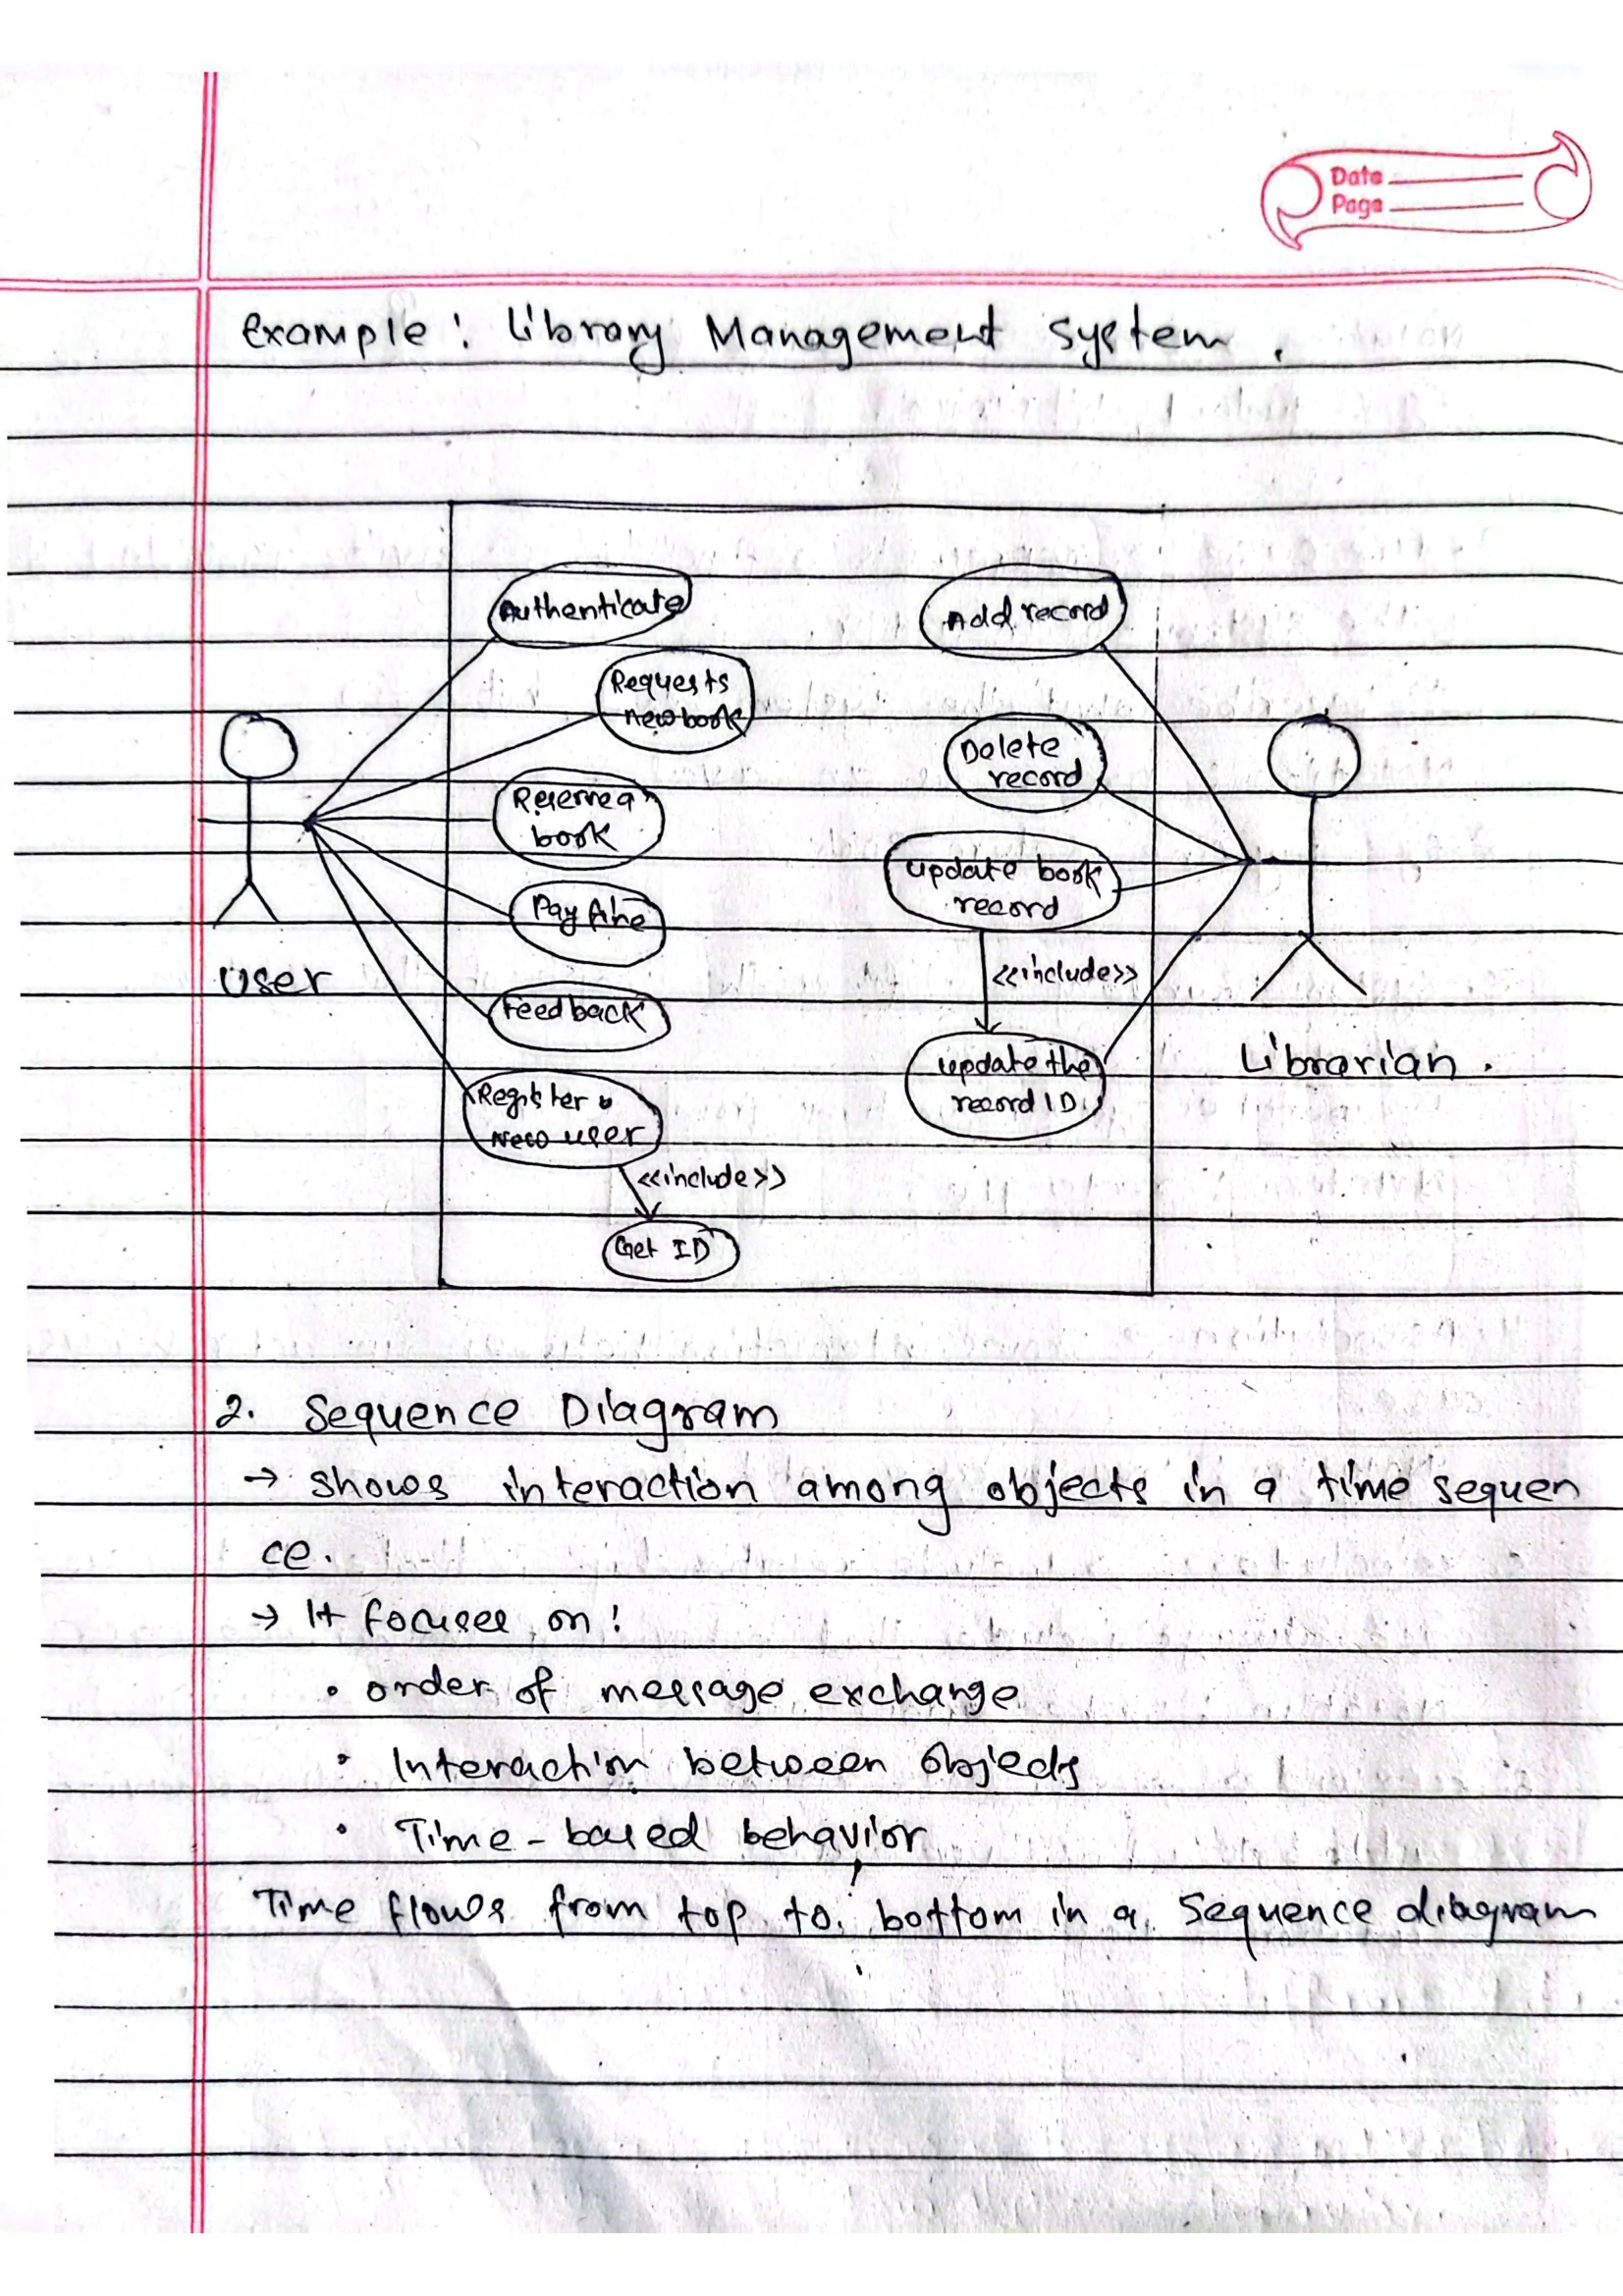 Date
Page
Example: Library Management System.
Authenticate
Requests
new book
Reserve a
book
Pay fine
Feedback
Register
New user
<<include>>
Get ID
User
Add record
Delete
record
update book
record
<<include>>
update the
record ID.
Librarian.
2. Sequence Diagram
→ shows interaction among objects in a time sequen
ce.
→ It focuses on:
• order of message exchange
• Interaction between Objects
• Time-based behavior
Time flows from top to bottom in a sequence diagram